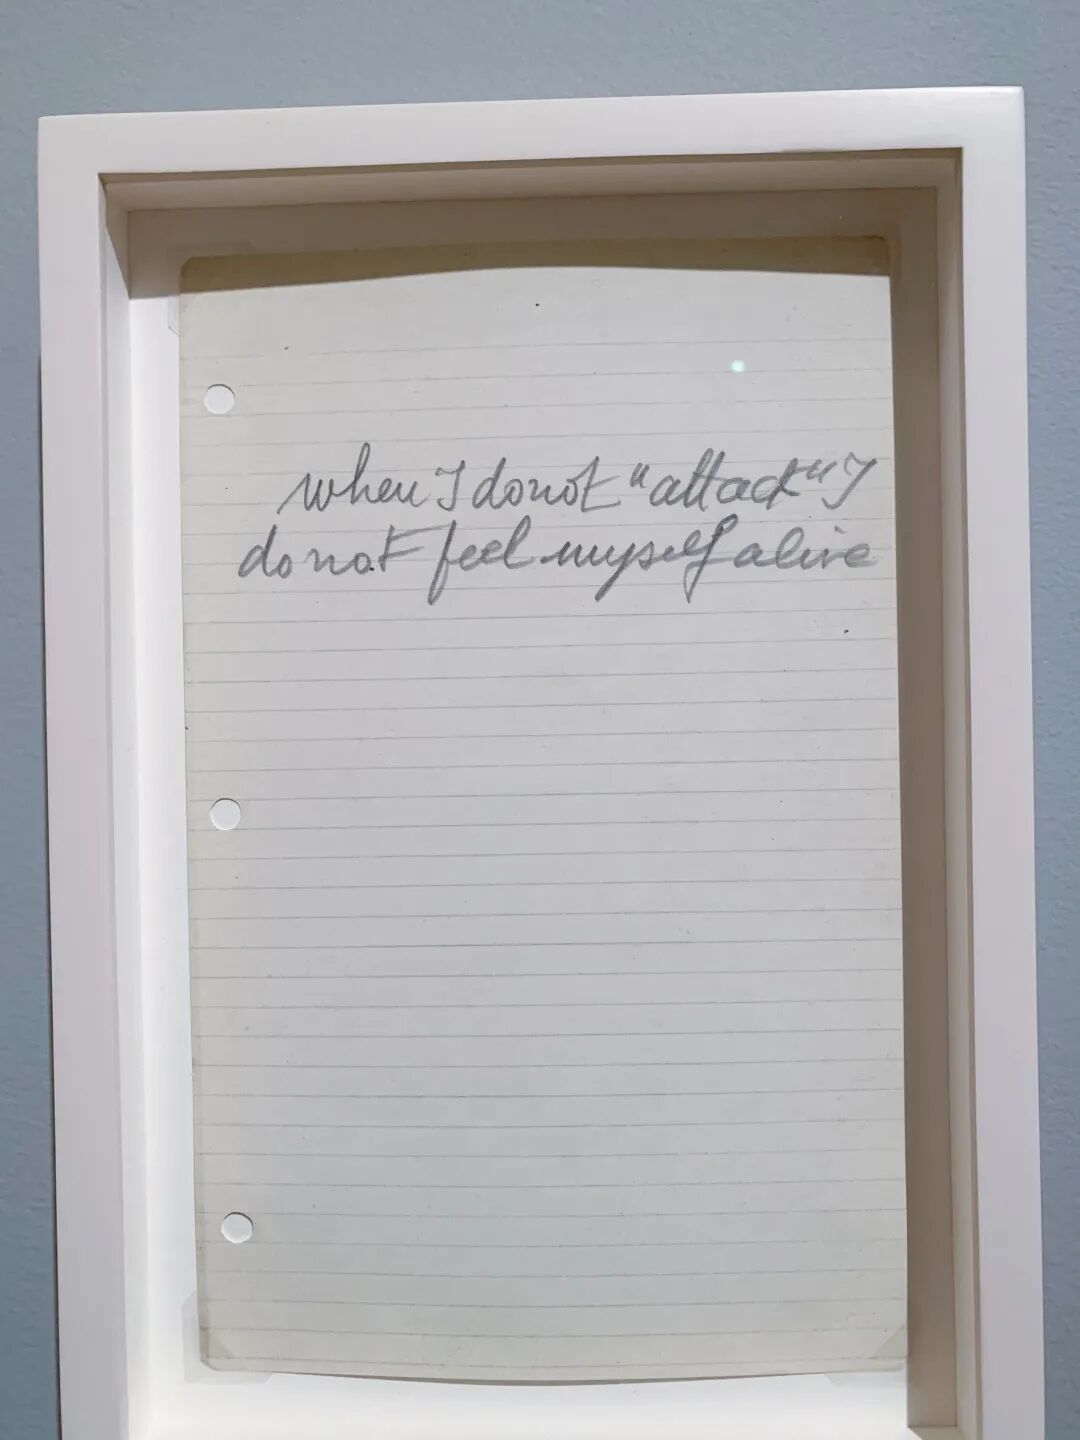 when I do not "attack" I
do not feel myself alive